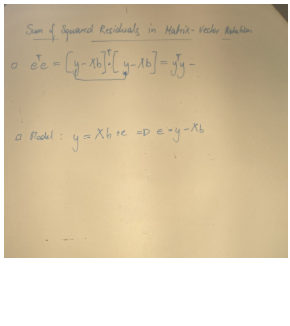 Sum of Squared Residuals in Matrix-Vector Notation
o eᵀe = [y-Xb]ᵀ·[y-Xb] = yᵀy -
□ Model: y = Xb + e => e = y - Xb